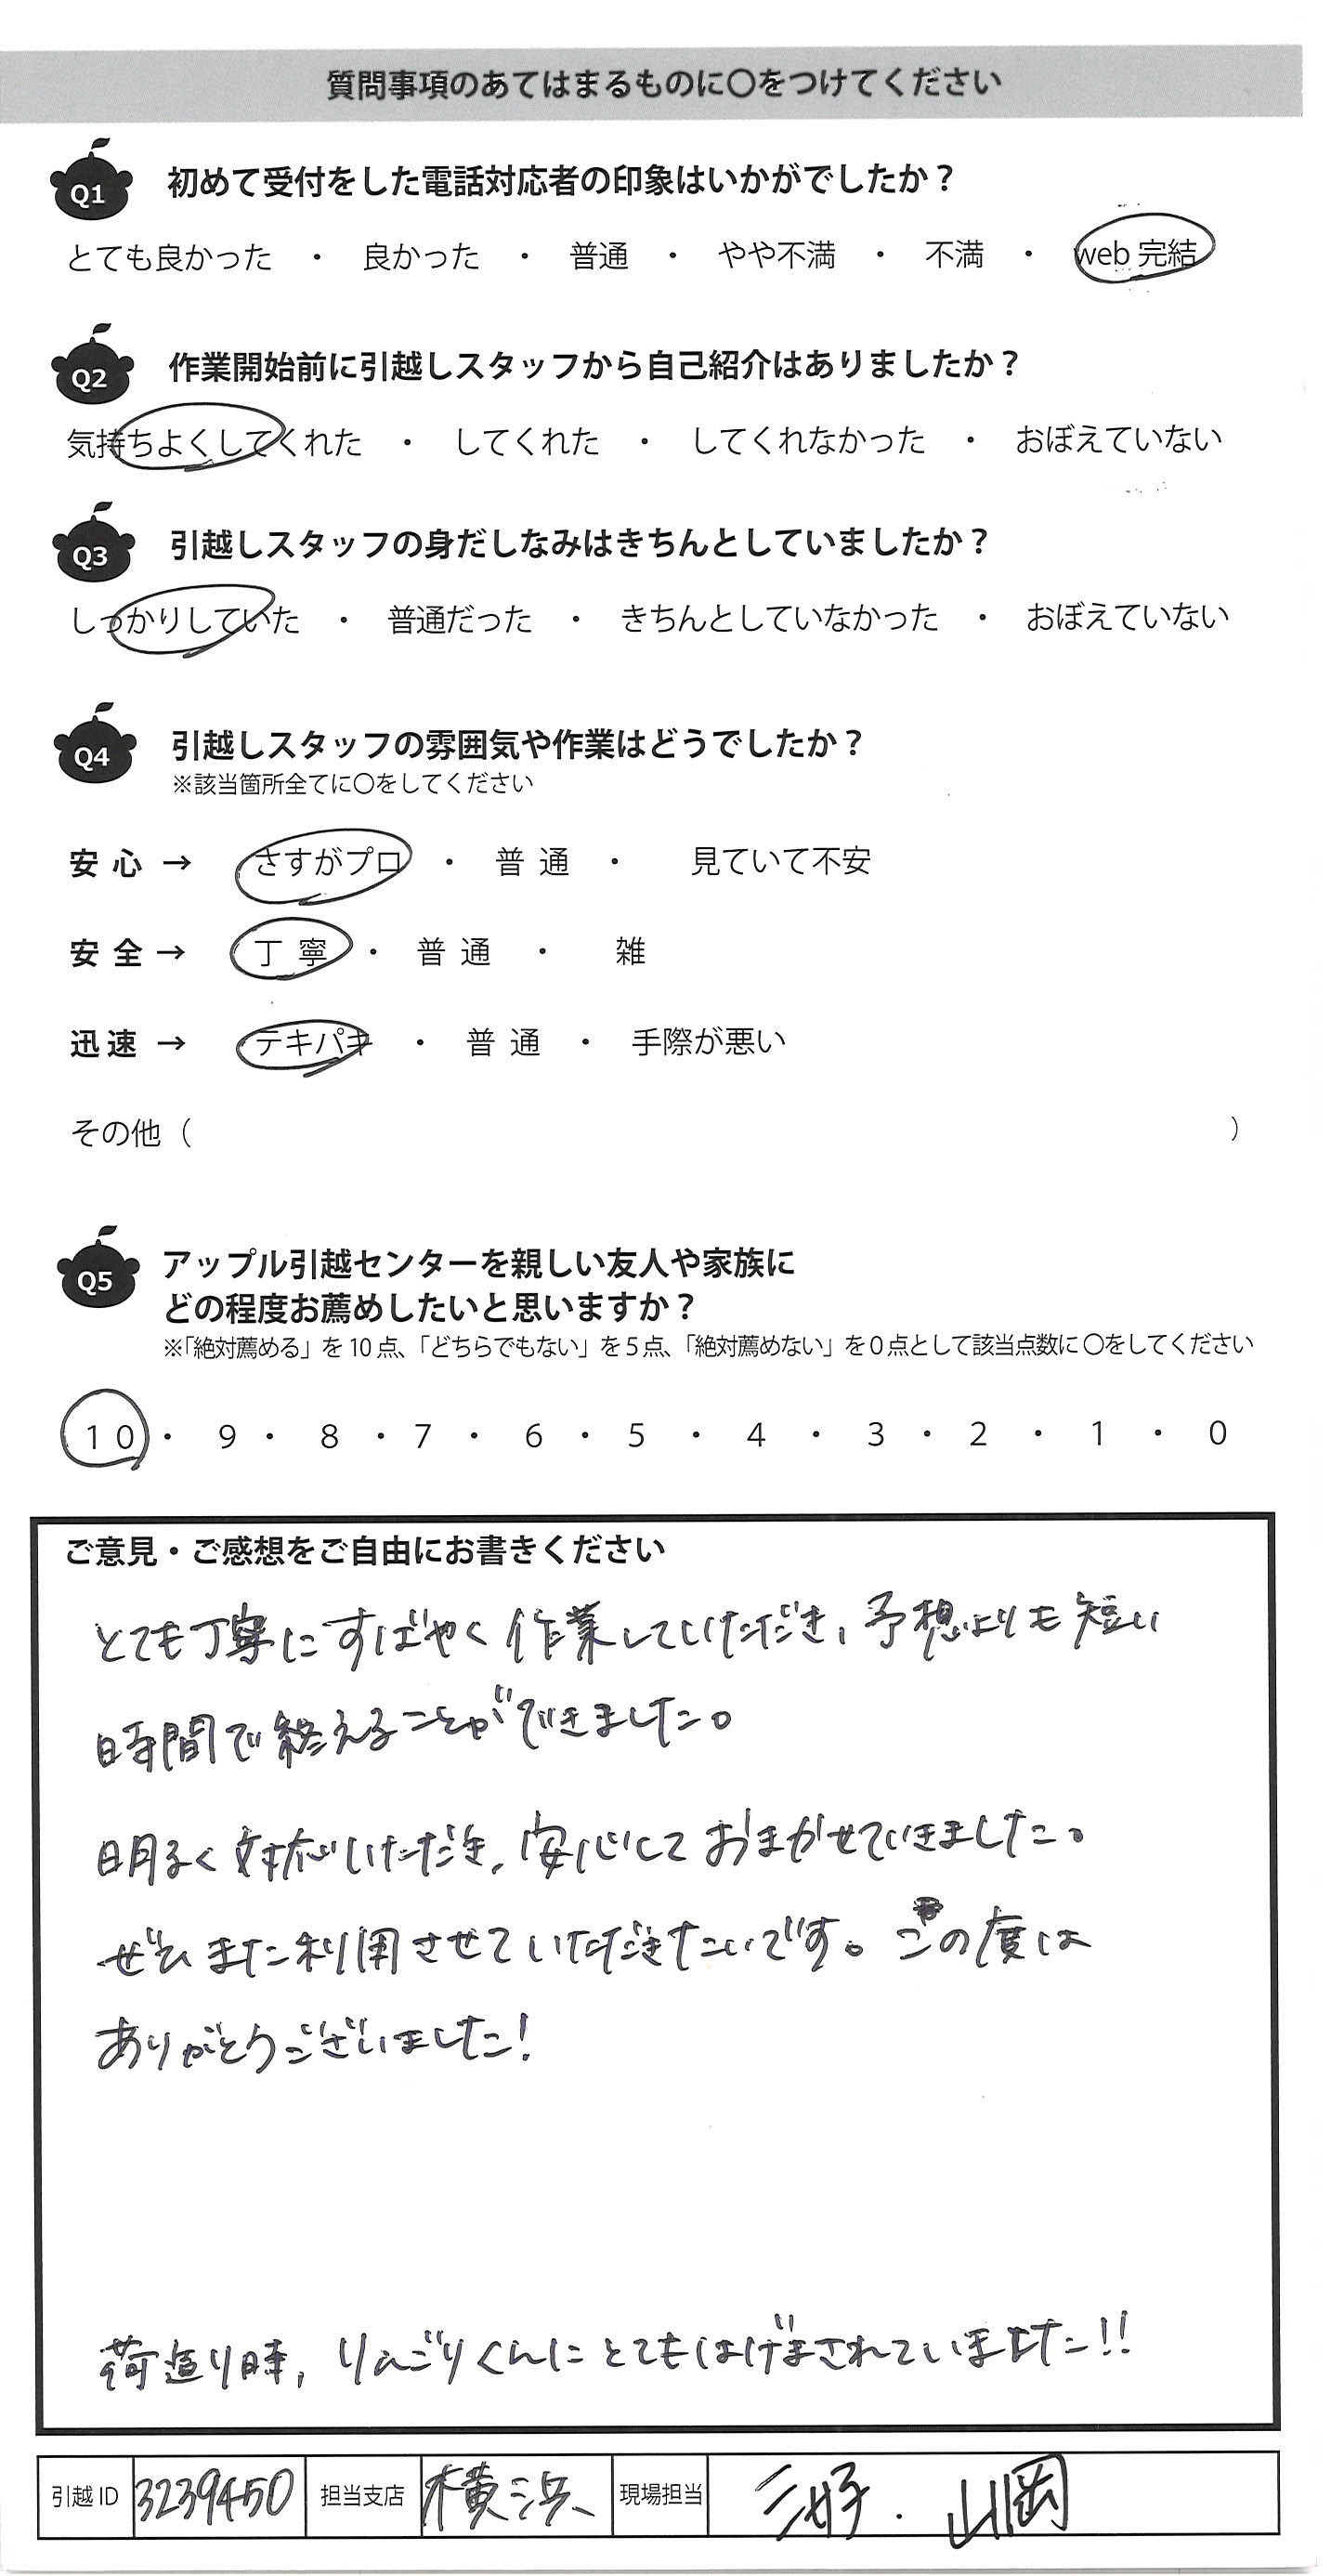 質問事項のあてはまるものに○をつけてください
Q1 初めて受付をした電話対応者の印象はいかがでしたか？
とても良かった ・ 良かった ・ 普通 ・ やや不満 ・ 不満 ・ web 完結
Q2 作業開始前に引越しスタッフから自己紹介はありましたか？
気持ちよくしてくれた ・ してくれた ・ してくれなかった ・ おぼえていない
Q3 引越しスタッフの身だしなみはきちんとしていましたか？
しっかりしていた ・ 普通だった ・ きちんとしていなかった ・ おぼえていない
Q4 引越しスタッフの雰囲気や作業はどうでしたか？
※該当箇所全てに○をしてください
安心 → さすがプロ ・ 普通 ・ 見ていて不安
安全 → 丁寧 ・ 普通 ・ 雑
迅速 → テキパキ ・ 普通 ・ 手際が悪い
その他（ ）
Q5 アップル引越センターを親しい友人や家族に
どの程度お薦めしたいと思いますか？
※「絶対薦める」を10点、「どちらでもない」を5点、「絶対薦めない」を0点として該当点数に○をしてください
10 ・ 9 ・ 8 ・ 7 ・ 6 ・ 5 ・ 4 ・ 3 ・ 2 ・ 1 ・ 0
ご意見・ご感想をご自由にお書きください
とても丁寧にすばやく作業していただき、予想よりも短い
時間で終えることができました。
明るく対応いただき、安心しておまかせていきました。
ぜひまた利用させていただきたいです。この度は
ありがとうございました！
荷造り時、りんごりくんにとてもはげまされていました!!
引越ID 3239450 担当支店 横浜 現場担当 三好．山岡